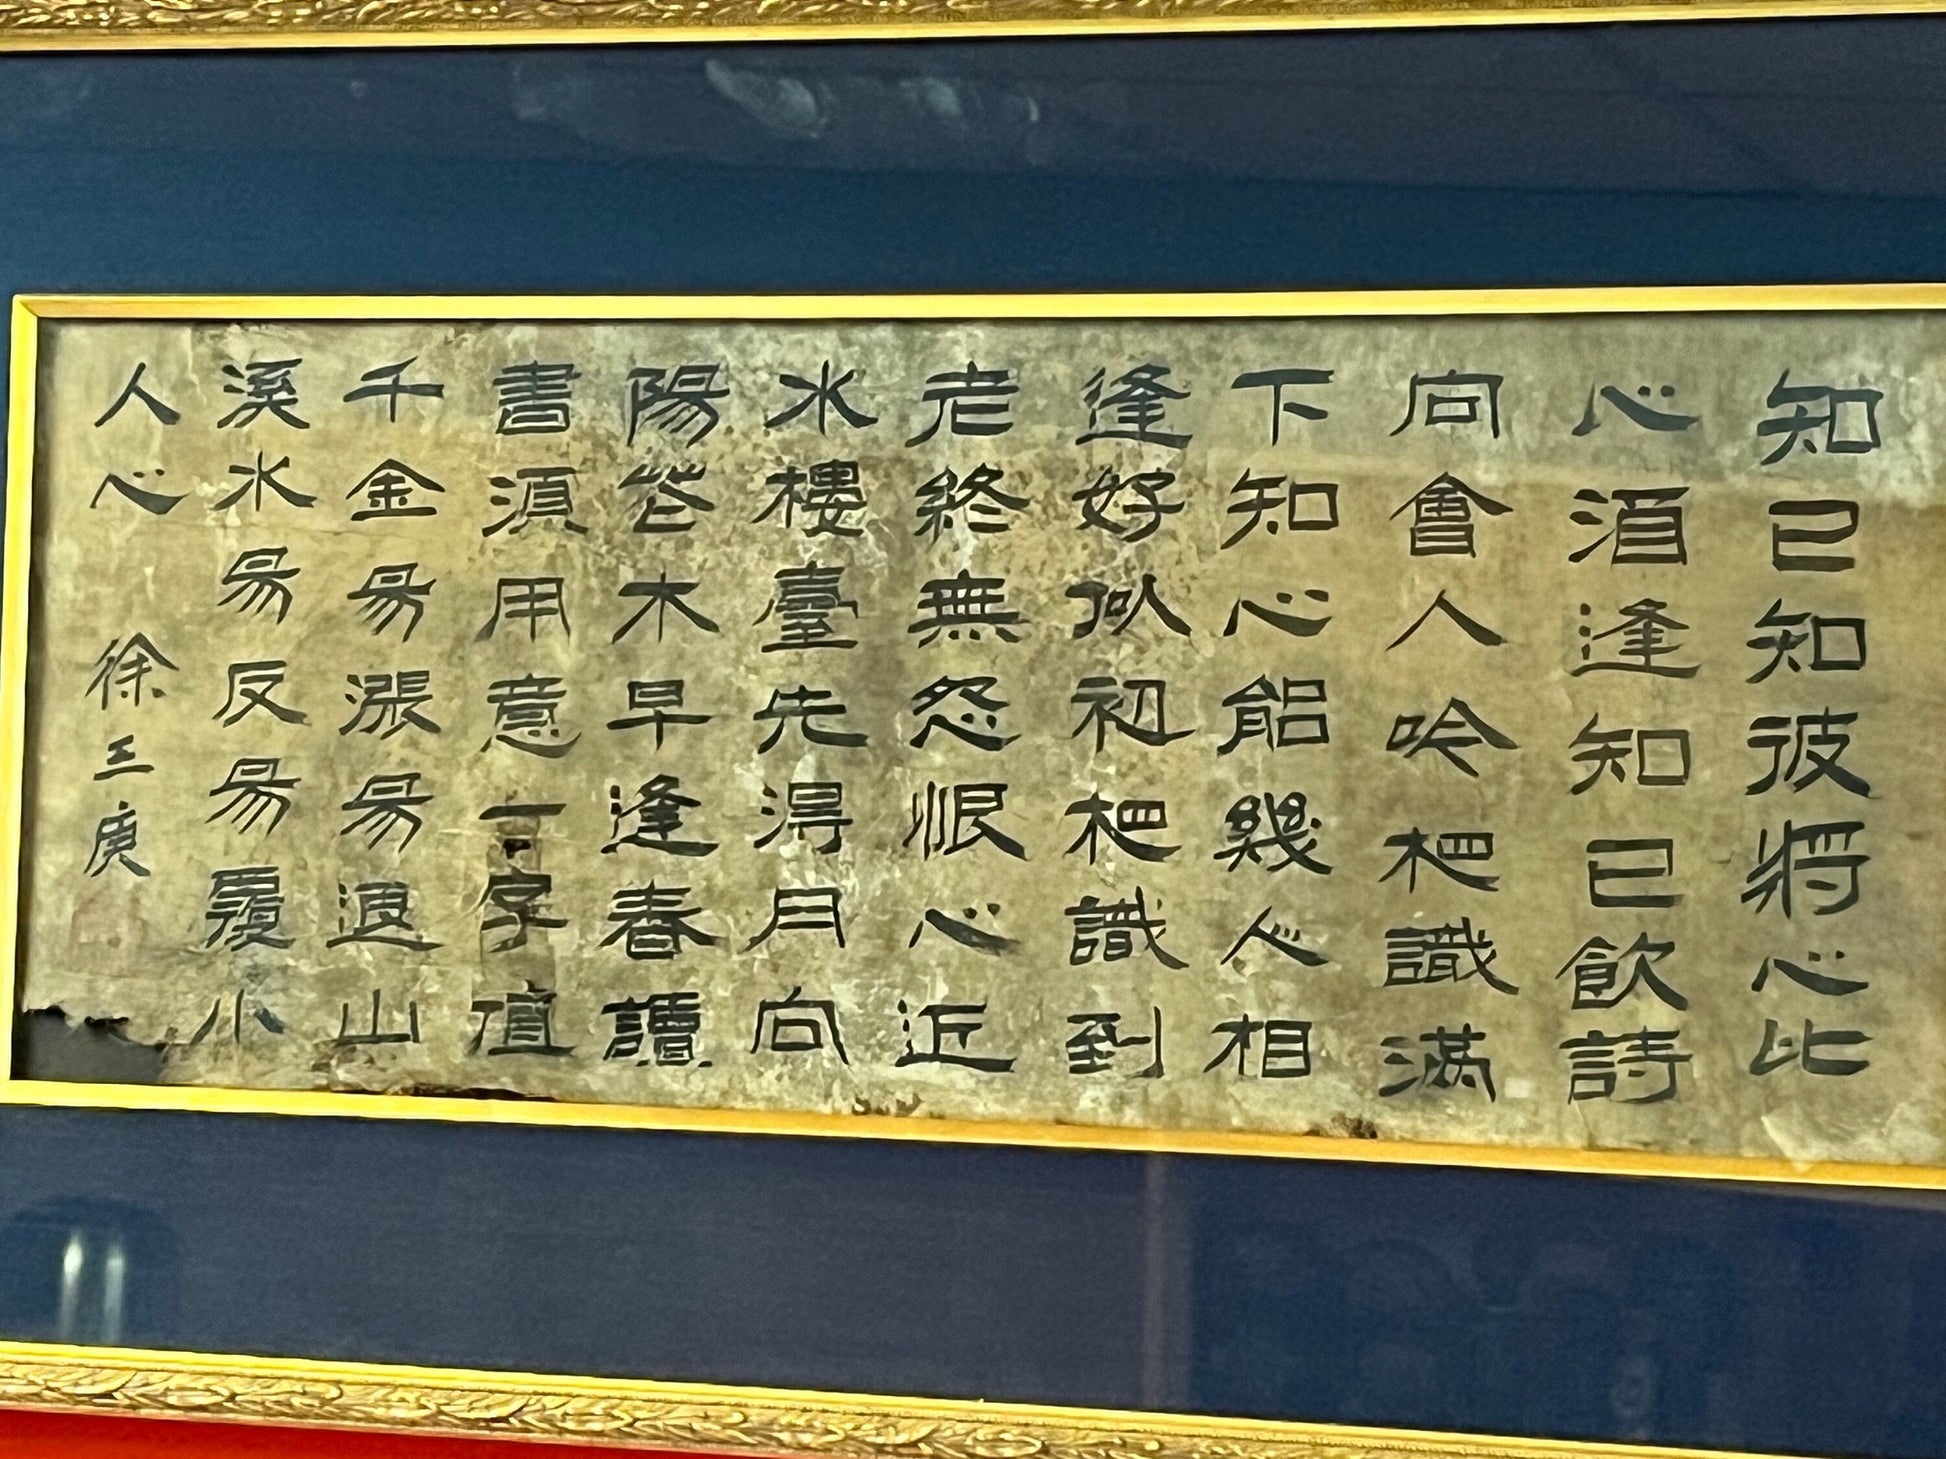 知己知彼將心比
心酒逢知己飲詩
向會人吟相識滿
下知心能幾人相
逢好似初相識到
老終無怨恨心近
水樓臺先得月向
陽花木早逢春讀
書須用意一字値
千金易漲易退山
溪水易反易覆小
人心 徐三庚